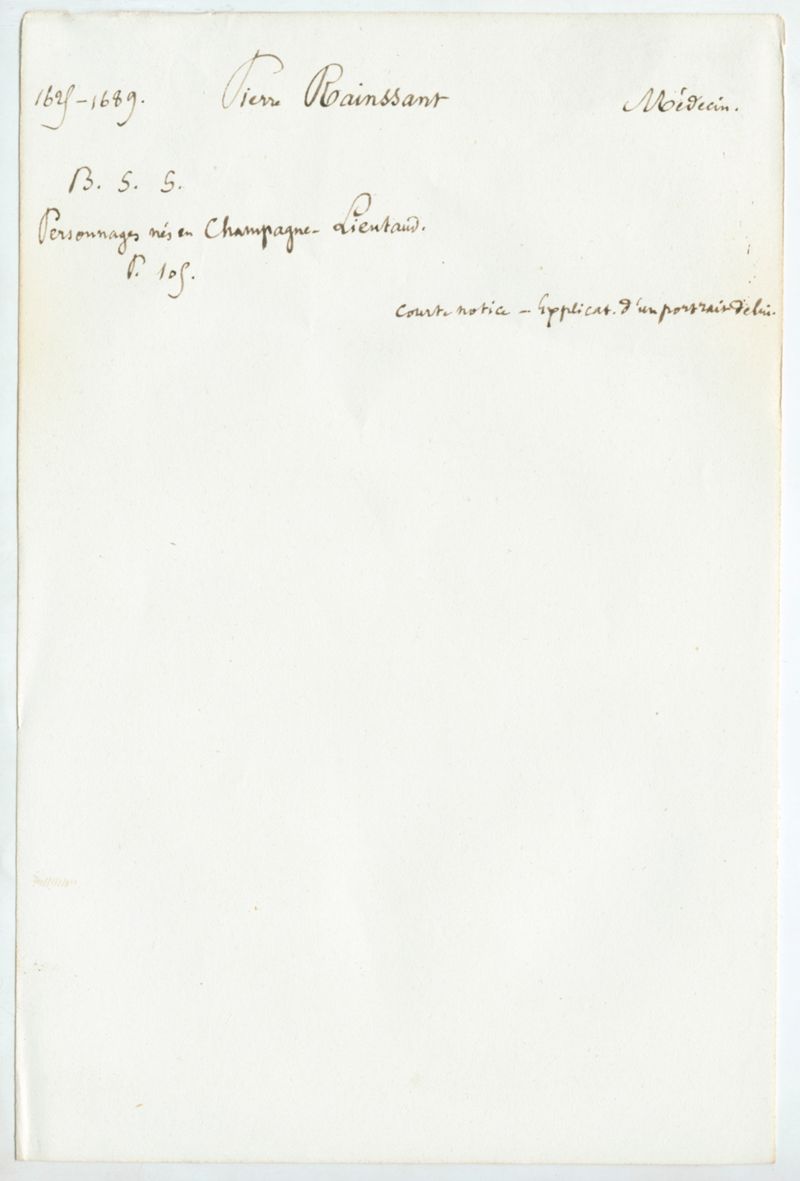 1625-1689. Pierre Rainssant Médecin.
B. S. S.
Personnages nés en Champagne - Lieutaud.
P. 105.
Courte notice - Explicat. d'un portrait de lui.